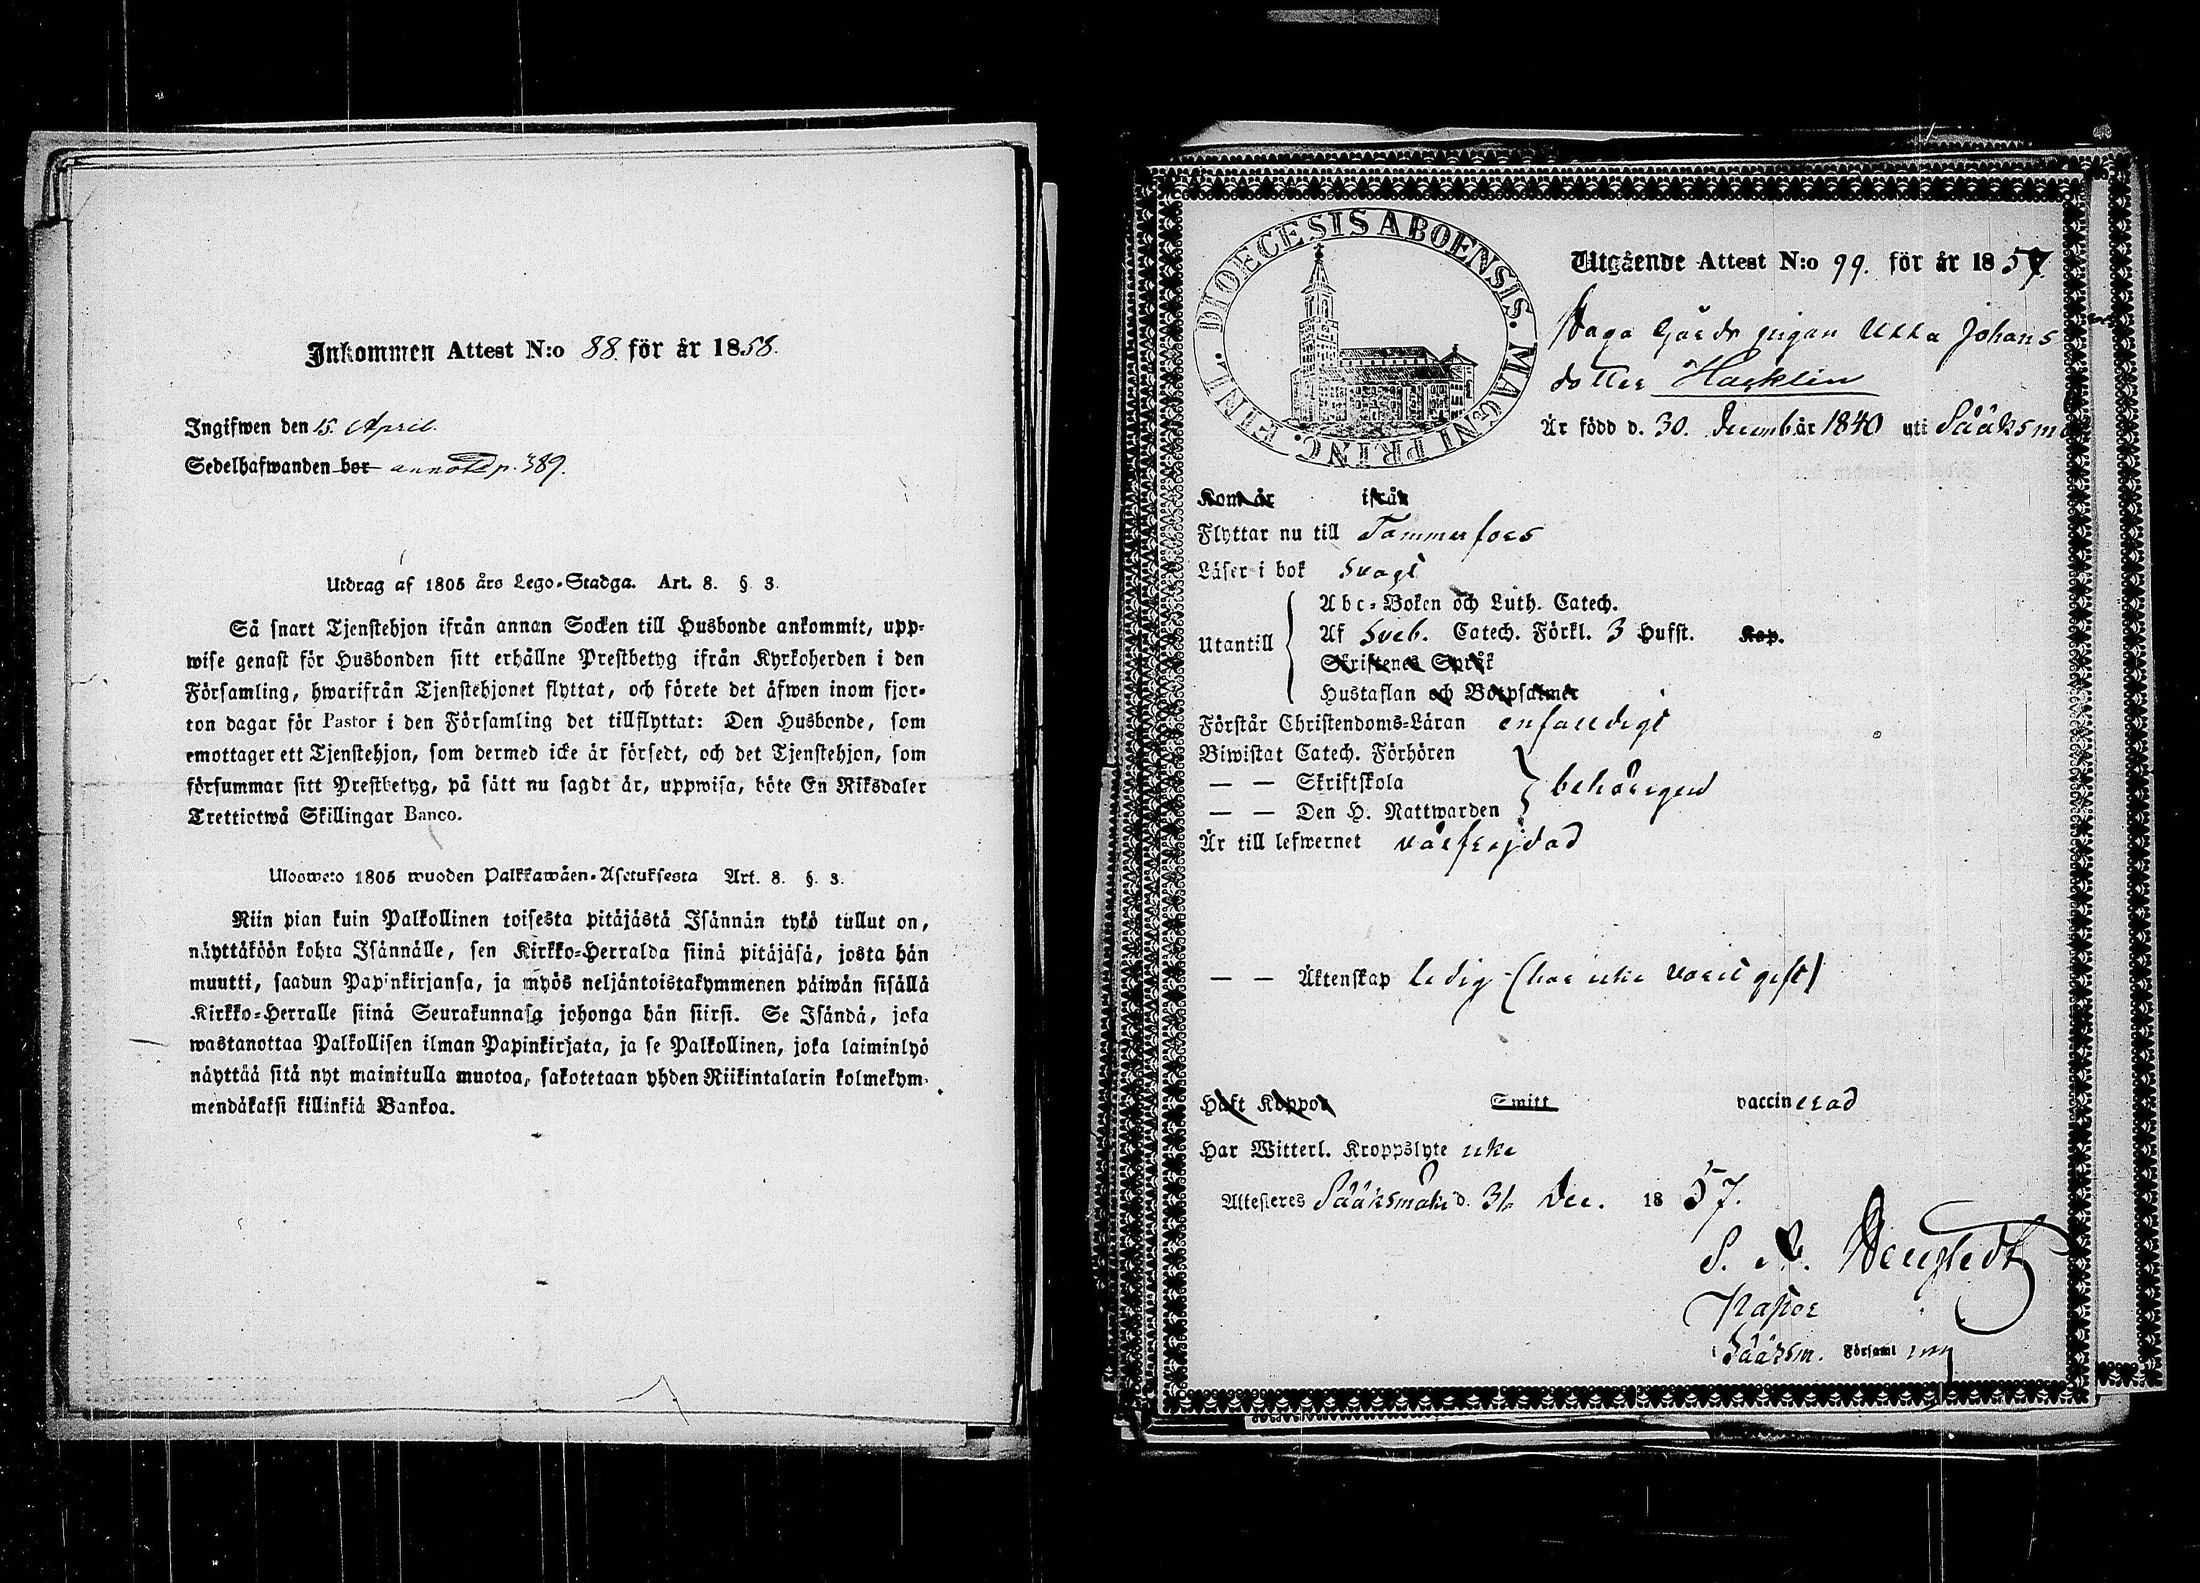 Inkommen Attest N:o 88. för år 1858.
Ingifwen den 15. April.
Sedelhafwanden bor annoterad p. 389.
Utdrag af 1805 års Lego-Stadga. Art. 8. § 3.
Så snart Tjenstehjon ifrån annan Socken till Husbonde ankommit, upp-
wise genast för Husbonden sitt erhållne Prestbetyg ifrån Kyrkoherden i den
Församling, hwarifrån Tjenstehjonet flyttat, och förete det äfwen inom fjor-
ton dagar för Pastor i den Församling det tillflyttat: Den Husbonde, som
emottager ett Tjenstehjon, som dermed icke är försedt, och det Tjenstehjon, som
försummar sitt Prestbetyg, på sätt nu sagdt är, uppwisa, böte En Riksdaler
Trettiotwå Skillingar Banco.
Ulosweto 1805 wuoden Palkkawäen-Asetuksesta Art. 8. §. 3.
Niin pian kuin Palkollinen toisesta pitäjästä Isännän tykö tullut on,
näyttäköön kohta Isännälle, sen Kirkko-Herralda siinä pitäjäsä, josta hän
muutti, saadun Papinkirjansa, ja myös neljäntoistakymmenen päiwän sisällä
Kirkko-Herralle siinä Seurakunnasa johonga hän siirsi. Se Isändä, joka
wastanottaa Palkollisen ilman Papinkirjata, ja se Palkollinen, joka laiminlyö
näyttää sitä nyt mainitulla muotoa, sakotetaan yhden Riikintalarin kolmekym-
mendäkaksi killinkiä Bankoa.
DIOECESIS ABOENSIS. MAGNI PRINC. FINL.
Utgående Attest N:o 99. för år 1857.
Gårds pigan Ulla Johans
dotter Hacklin
Är född d. 30. Decemb år 1840 uti Sääksm
Kom år ifrån
Flyttar nu till Tammerfors
Läser i bok svagt
Utantill
Abc-Boken och Luth. Catech.
Af Sveb. Catech. Förkl. 3 Hufst. Kap.
Skriftenes Språk
Hustaflan och Botpsalmer
Förstår Christendoms-Läran enfaldigt
Biwistat Catech. Förhören
— — Skriftskola
— — Den H. Nattwarden
behörigen
Är till lefwernet välfrejdad
— — Äktenskap ledig (har icke varit gift)
Haft Koppor Smitt vaccinerad
Har Witterl. Kroppslyte icke
Attesteres Sääksmäki d. 31 Dec. 1857.
Pastor
i Sääksm. Församl ing